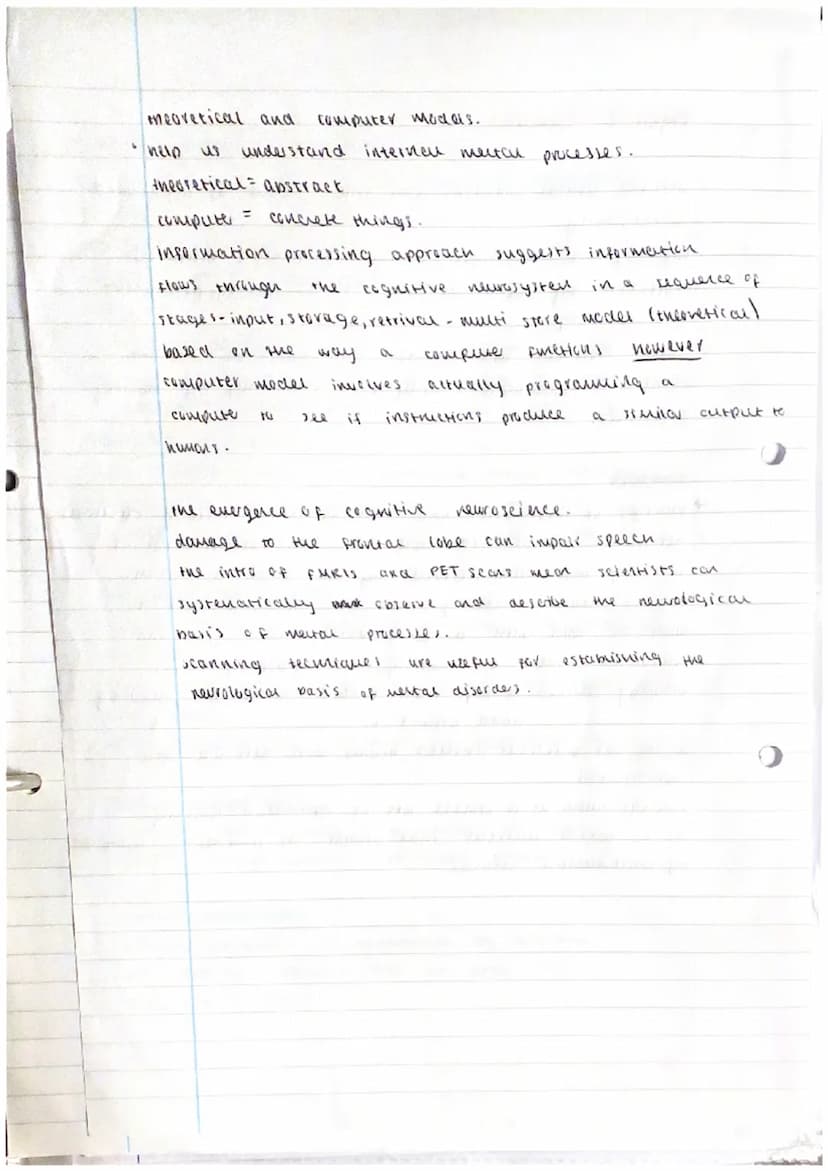 theoretical and computer models.
• help us understand internal mental processes.
theoretical = abstract
computer = concrete things.
information processing approach suggests information
flows through the cognitive neurosystem in a sequence of
stages - input, storage, retrival - multi store model (theoretical)
based on the way a computer functions however
computer model involves actually programming a
computer to see if instructions produce a similar output to
humans.
the emergence of cognitive neuroscience.
damage to the frontal lobe can impair speech
the intro of FMRIs and PET scans mean scientists can
systematically observe and describe the neurological
basis of mental processes.
scanning techniques are useful for establishing the
neurological basis of mental disorders.